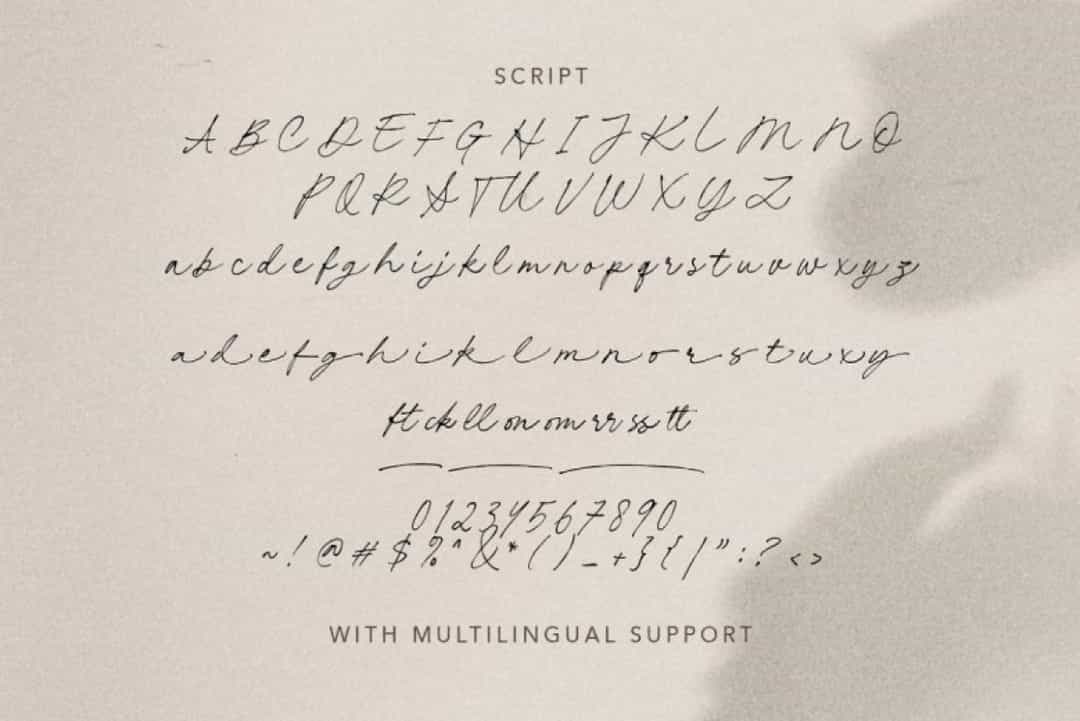 SCRIPT
A B C D E F G H I J K L M N O
P Q R S T U V W X Y Z
a b c d e f g h i j k l m n o p q r s t u v w x y z
a d e f g h i k l m n o r s t u x y
ft ck ll on om rr ss tt
01234567890
~ ! @ # $ % ^ & * ( ) _ + } { | " : ? < >
WITH MULTILINGUAL SUPPORT